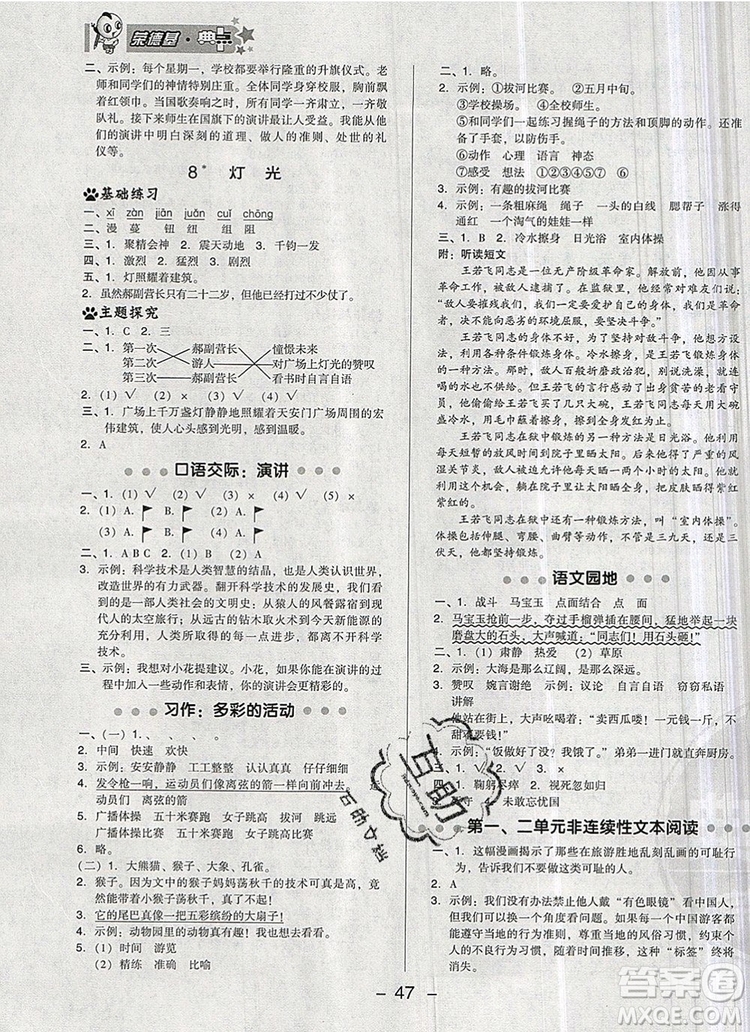 荣德基·典点
二、示例：每个星期一，学校都要举行隆重的升旗仪式。老
师和同学们的神情特别庄重。全体同学身穿校服，胸前戴
着红领巾。当国歌奏响之时，同学们一齐肃立，右手举起行
队礼。接下来师生在国旗下的演讲最让人受益。我能从他
们的演讲中明白深刻的道理、做人的准则、处世的礼
仪等。
8* 灯 光
基础练习
一、xī zàn jiān juàn cuī chōng
二、漫 蔓 钮 纽 组 阻
三、1. 聚精会神 2. 震天动地 3. 千钧一发
四、1. 激烈 2. 猛烈 3. 剧烈
五、1. 灯照耀着建筑。
2. 虽然郝副营长只有二十二岁，但他已打过不少仗了。
主题探究
一、1. C 2. 三
二、1. 第一次 郝副营长 憧憬未来
第二次 游人 对广场上灯光的赞叹
第三次 郝副营长 看书时自言自语
2. (1)√ (2)× (4)√
三、1. 广场上千万盏灯静静地照耀着天安门广场周围的宏
伟建筑，使人心头感到光明，感到温暖。
2. A
口语交际：演讲
一、1. (1)√ (2)√ (3)× (4)√
2. (1)A. B. (2)A. B.
(3)A. B. (4)A. B.
二、1. ABC 2. (1)√ (2)× (3)√ (4)×
3. 示例：科学技术是人类智慧的结晶，也是人类认识世界、
改造世界的有力武器。翻开科学技术的发展史，我们看到
的是一部人类社会的文明史：从猿人的风餐露宿到现
代人的太空旅行，从远古的钻木取火到当今新能源的
充分利用，人类所取得的每一点进步，都离不开科学
技术。
三、示例：我想对小花提建议。小花，如果你能在演讲的过
程中加入一些动作和表情，你的演讲会更精彩的。
习作：多彩的活动
一、(一)1. 、 。 、 、 。
2. 中间 快速 欢快
3. 示例：安安静静 工工整整 认认真真 仔仔细细
4. 发令枪一响，运动员们像离弦的箭一样向前冲去。 运
动员们 离弦的箭
5. 广播体操 五十米赛跑 女子跳高 五十米赛跑
广播体操 五十米赛跑 女子跳高
(二)1. 大熊猫、猴子、大象、孔雀。
2. 猴子。猴子妈妈荡秋千的部分描写得最具体。
3. 它的尾巴真像一把五彩缤纷的大扇子！
4. 示例：动物园里的动物真有趣啊！
5. (1)时间 游览
(2)精练 准确 比喻
二、1. 略。
2. 示例：①拔河比赛。 ②五月中旬。
③学校操场。 ④全校师生。
⑤和同学们一起练习握绳子的方法和顶脚的动作。还准
备了手套，以防伤手。
⑥动作 心理 语言 神态
⑦感受 想法 ①②③④⑤⑥⑦
3. 示例：有趣的拔河比赛
4. 示例：一条粗麻绳 绳子 一头的白线 腮帮子 涨得
通红 一个淘气的娃娃一样
三、1. B 2. 冷水擦身 日光浴 室内体操
附：听读短文
王若飞同志是一位无产阶级革命家。解放前，他因从事
革命工作，被敌人逮捕。在监狱里，他常对难友们说：
“敌人要摧残我们，我们一定要爱护自己的身体。我们是革
命者，决不能向恶劣的环境屈服，要坚决斗争。”
王若飞同志坚持锻炼身体，为的是对敌斗争。他在狱中
用各种条件锻炼身体。冷水擦身，是他锻炼身体的方法之
一。那时候，反动派不让“政治犯”洗澡。王若飞同志
对此并不在意，别说洗澡，就是喝的水也不能满足。没有办
法，王若飞同志就偷偷地买了几只大碗，每天用这几只大碗盛
水擦身，用毛巾蘸着冷水擦身，擦到全身发红为止。
王若飞同志在狱中锻炼的另一种方法是日光浴。他利用
每天短暂的放风时间到院子里晒太阳。后来，他得了严重的风
湿关节炎，敌人不得不允许他每天晒一两个小时的太阳。他
就利用这个机会，躺在院子里让太阳晒，直晒得皮肤紫红
紫红的。
王若飞同志在狱中还有一种锻炼方法，叫“室内体操”，
包括伸腿、弯腰、曲臂等动作。不管是三九天，还是三
伏天，他从不间断。
语文园地
一、1. 战斗 马宝玉 点面结合 点 面
2. 马宝玉抢前一步，夺过手榴弹插在腰间，猛地举起一块
磨盘大的石头，大声喊道：“同志们！用石头砸！”
二、1. (1)肃静 热爱 (2)草原
2. 示例：大海是那么辽阔，是那么深远。
3. 赞叹 婉言谢绝 示例：议论 自言自语 窃窃私语
讲解
他站在街头，大声吆喝着：“卖西瓜喽！一块钱一斤，不
甜不要钱！”
4. 示例：“饭做好了没？我饿了。”弟弟一进门就直奔厨房。
三、1. × 2. √ 3. ×
四、1. 鞠躬尽瘁 2. 视死如归
未敢忘忧国
第一、二单元非连续性文本阅读
一、1. 这幅漫画揭示了那些在旅游胜地乱刻乱画的可耻行
为，告诉我们不要做这种可耻的行为。
2. A
3. 示例：我们没有办法禁止别人戴“有色眼镜”看我们，但
我们可以换一个角度看问题。如果更多的中国游客都
能遵守道德规范，尊重当地风俗习惯，努力约束自己个
人的不良行为习惯，这种“标签”终将
消失。
互助
互助文档
答案圈
MXQE.COM
47